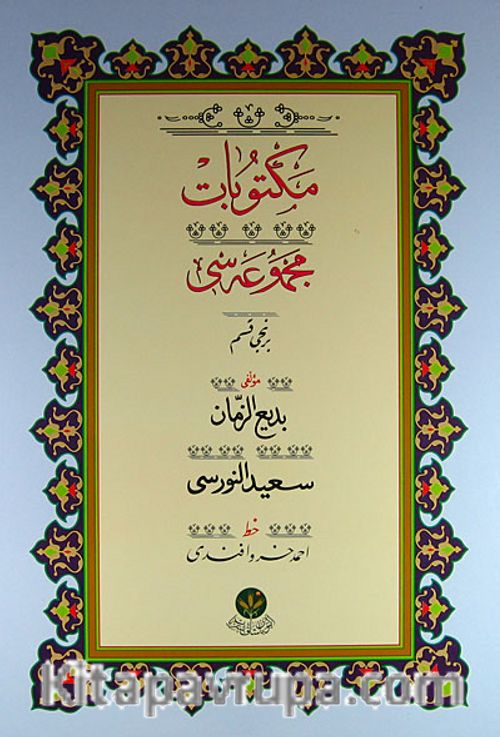 مكتوبات
مجموعه سى
برنجى قسم
مؤلفى
بديع الزمان
سعيد النورسى
خط
احمد خسرو افندى
kitapavrupa.com